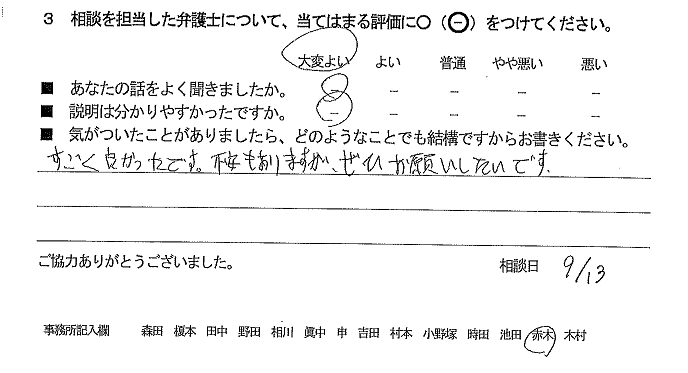 3 相談を担当した弁護士について、当てはまる評価に○（⊖）をつけてください。
大変よい よい 普通 やや悪い 悪い
■ あなたの話をよく聞きましたか。 － － － － －
■ 説明は分かりやすかったですか。 － － － － －
■ 気がついたことがありましたら、どのようなことでも結構ですからお書きください。
すごく良かったです。不安もありますが、ぜひお願いしたいです.
ご協力ありがとうございました。 相談日 9/13
事務所記入欄 森田 榎本 田中 野田 相川 眞中 申 吉田 村本 小野塚 時田 池田 赤木 木村